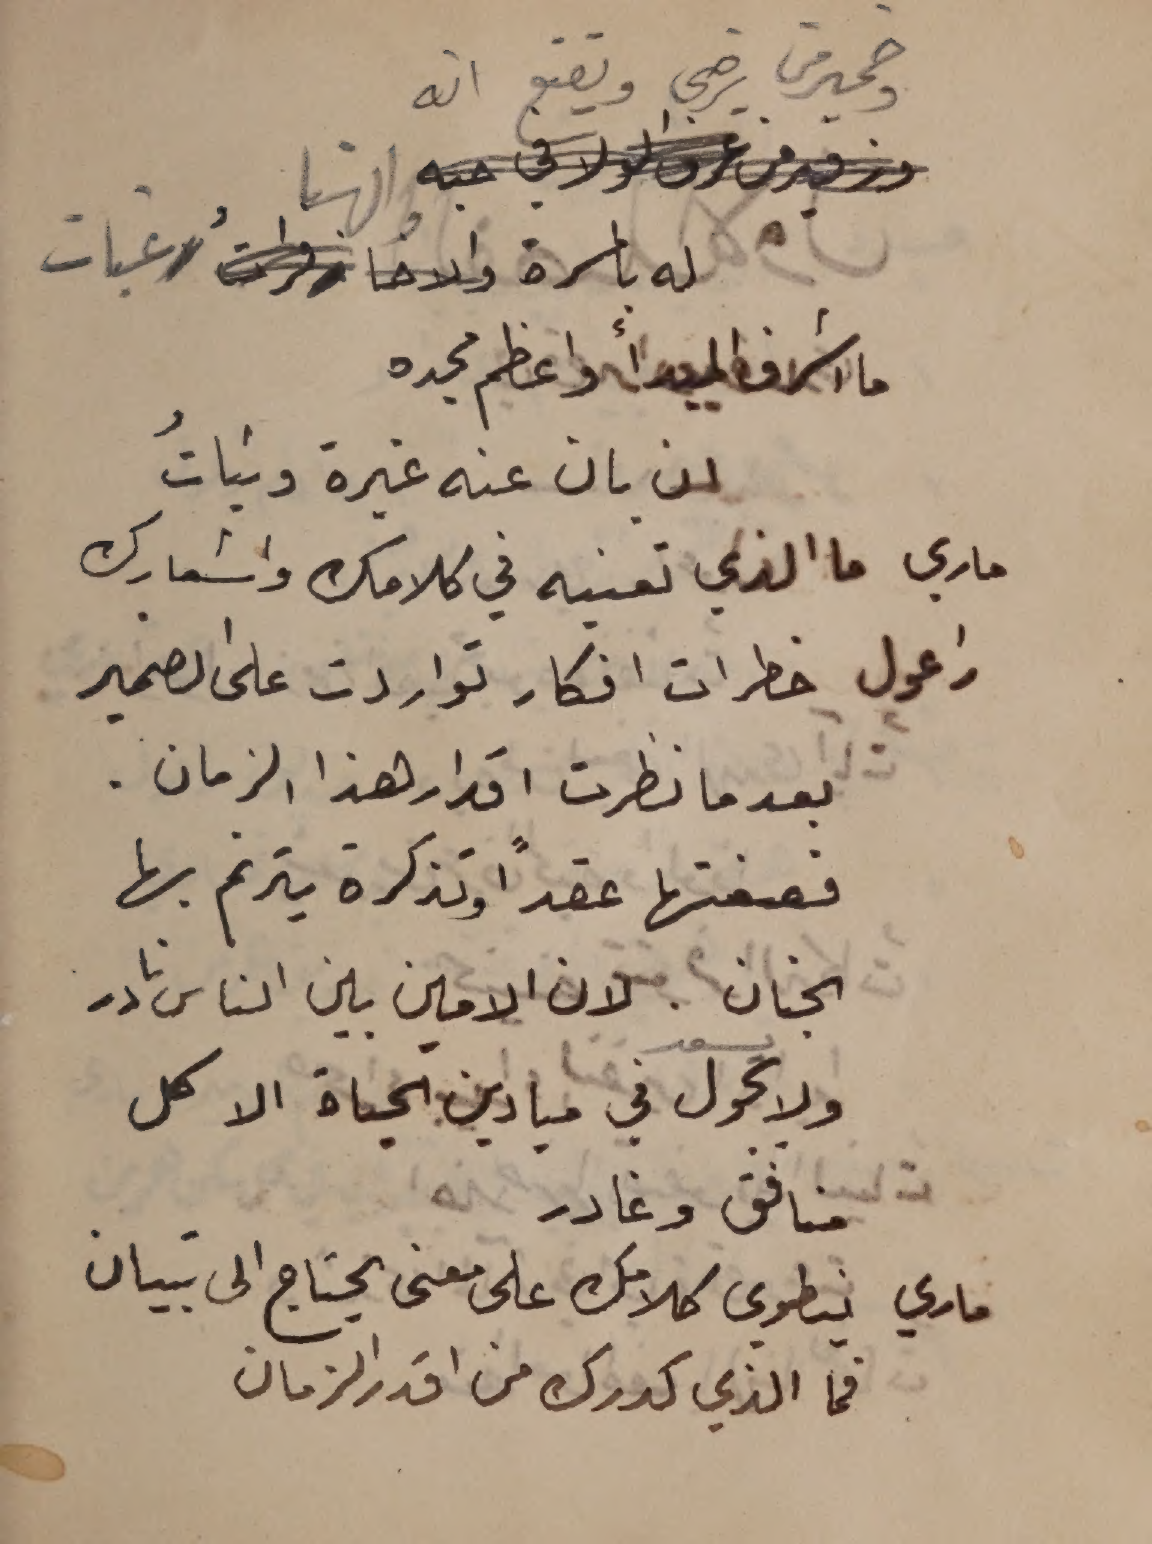 وضمير من يرضى ويقنع انه
في حبه
له بالمسرة والاخا والهنا رغبات
ما اشرف المبدأ واعظم مجده
لمن بان عنه غيرة وثباتُ
ماري ما الذي تعنيه في كلامك واشعارك
راعول خطرات افكار تواردت على الضمير
بعد ما نظرت اقدار هذا الزمان .
فصغتها عقداً وتذكرة يترنم بها
الجنان . لان الامين بين الناس نادر
ولا يجول في ميادين الحياة الا كل
منافق وغادر
ماري ينطوي كلامك على معنى يحتاج الى تبيان
فما الذي كدرك من اقدار الزمان